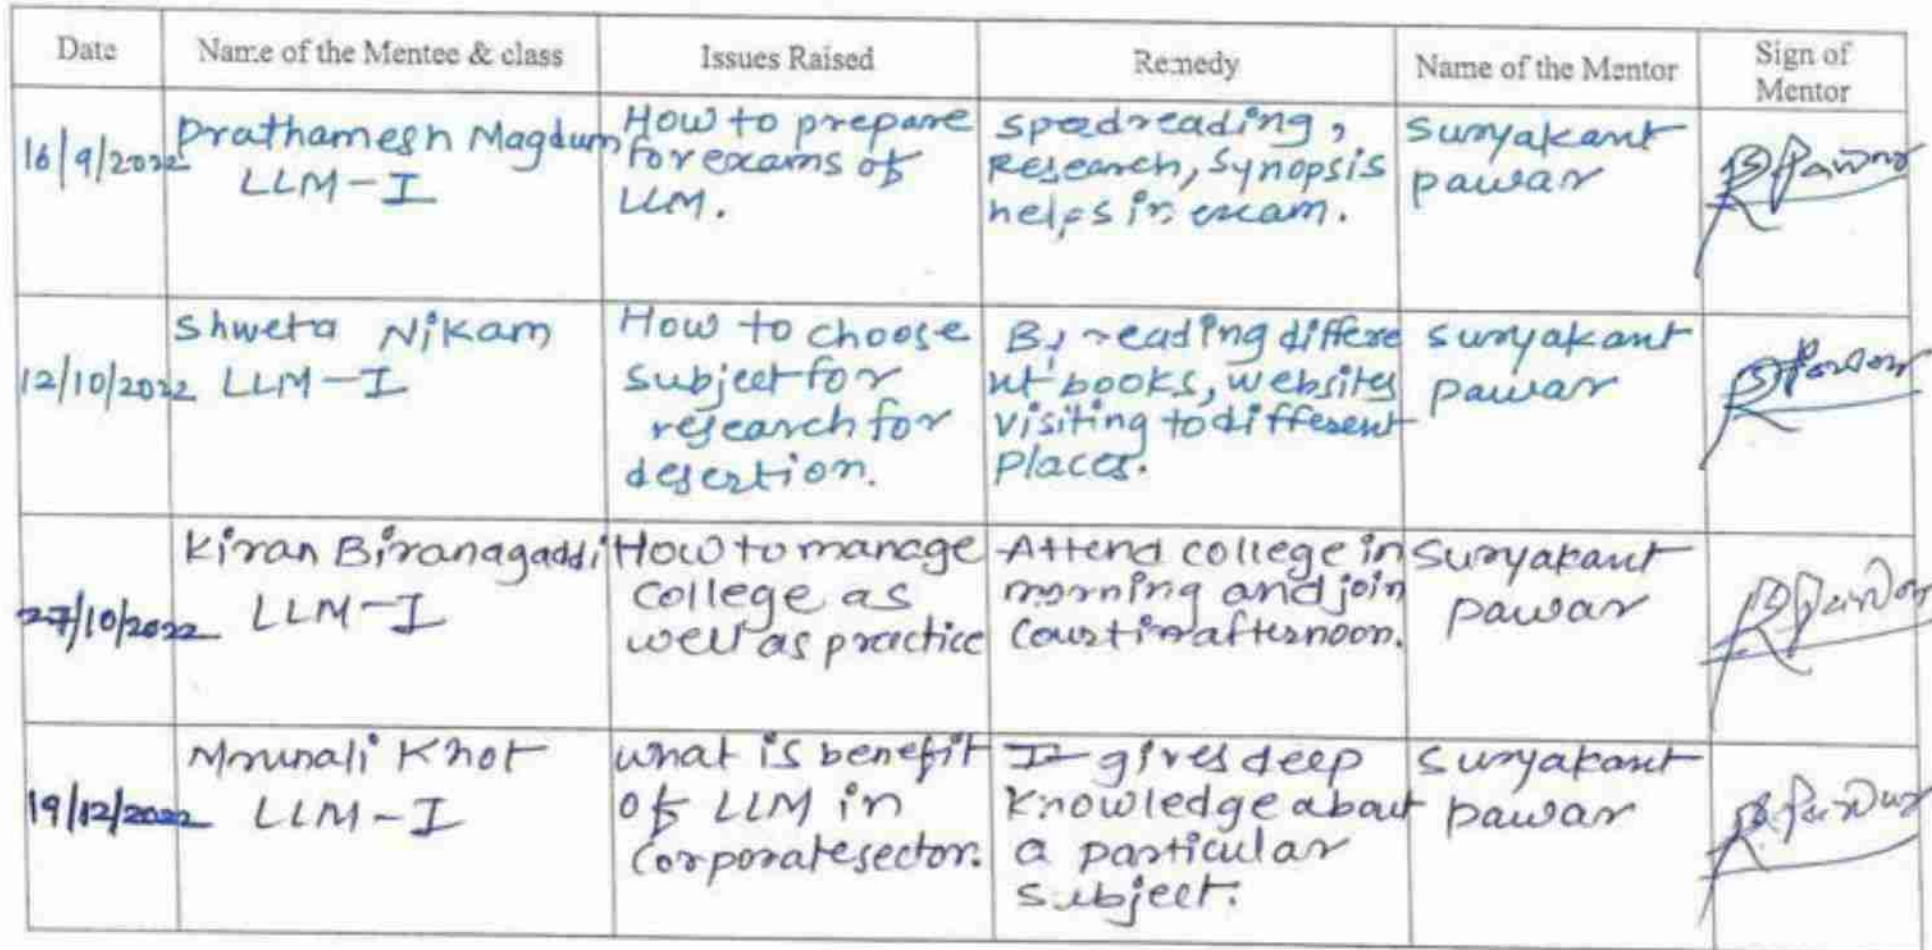 Date
Name of the Mentee & class
Issues Raised
Remedy
Name of the Mentor
Sign of
Mentor
16/9/2022
Prathamesh Magdum
LLM-I
How to prepare
for exams of
LLM.
Speedreading,
Research, Synopsis
helps in exam.
Suryakant
pawar
12/10/2022
Shweta Nikam
LLM-I
How to choose
subject for
research for
desertion.
By reading differe
nt books, websites
visiting to different
places.
Suryakant
pawar
27/10/2022
Kiran Biranagaddi
LLM-I
How to manage
college as
well as practice
Attend college in
morning and join
Court in afternoon.
Suryakant
pawar
19/12/2022
Mrunali Khot
LLM-I
what is benefit
of LLM in
Corporate sector.
It gives deep
knowledge about
a particular
subject.
Suryakant
pawar